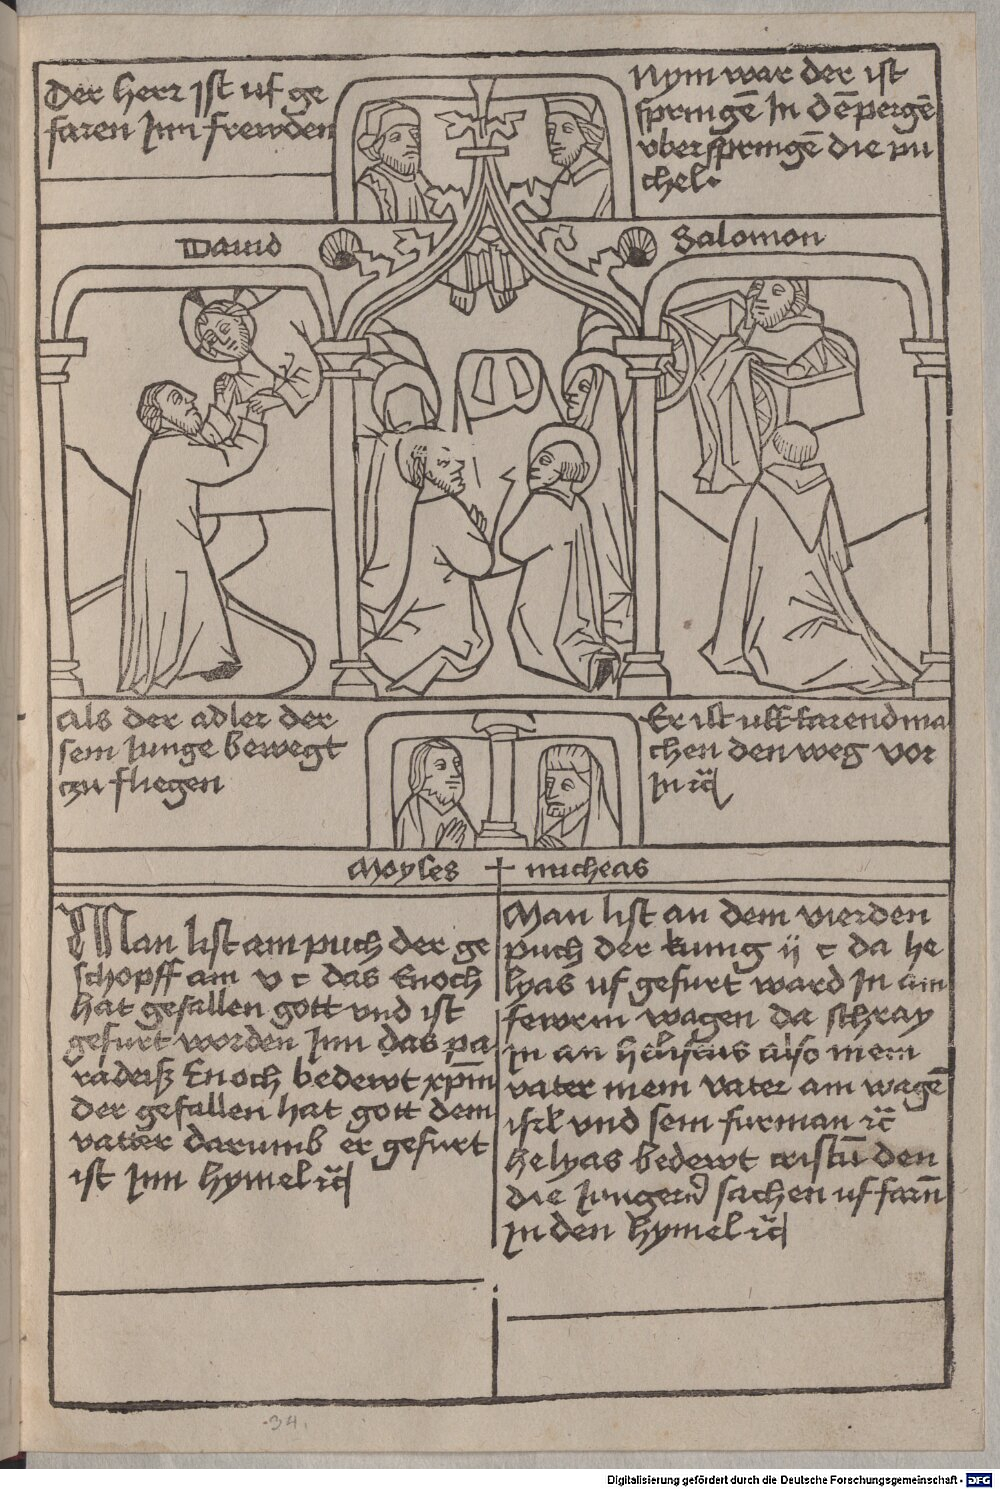 Der herr ist uf ge
faren Inn frewden
Nym war der ist
springē In dē pergē
vberspringē die pu
chel.
Dauid
Salomon
Als der adler der
sein Junge bewegt
zu fliegen
Er ist uff farend ma
chen den weg vor
In
Moyses
micheas
Man list am puch der ge
schopff am v c das Enoch
hat gefallen gott vnd ist
gefurt worden Inn das pa
radeisz Enoch bedewt xp̄m
der gefallen hat gott dem
vatter darumb er gefurt
ist Inn hymel
Man list an dem vierden
puch der kung ij c da he
lyas uf gefurt ward In aim
fewrin wagen da schray
In an heliseus also mein
vater mein vater am wagē
isrl vnd sein furman
helyas bedewt cristū den
die Junger sachen uf farn̄
In den hymel
34.
Digitalisierung gefördert durch die Deutsche Forschungsgemeinschaft - DFG